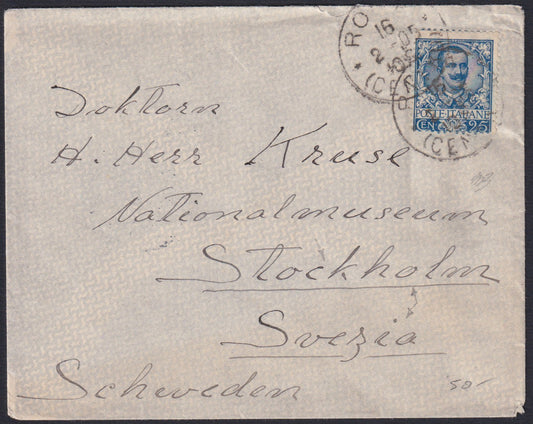 RO
16
2-05
(CEN
POSTE ITALIANE
CEN. 25
R
(CEN
Doktorn
H. Herr Kruse
Nationalmuseum
Stockholm
Svezia
Schweden
50-